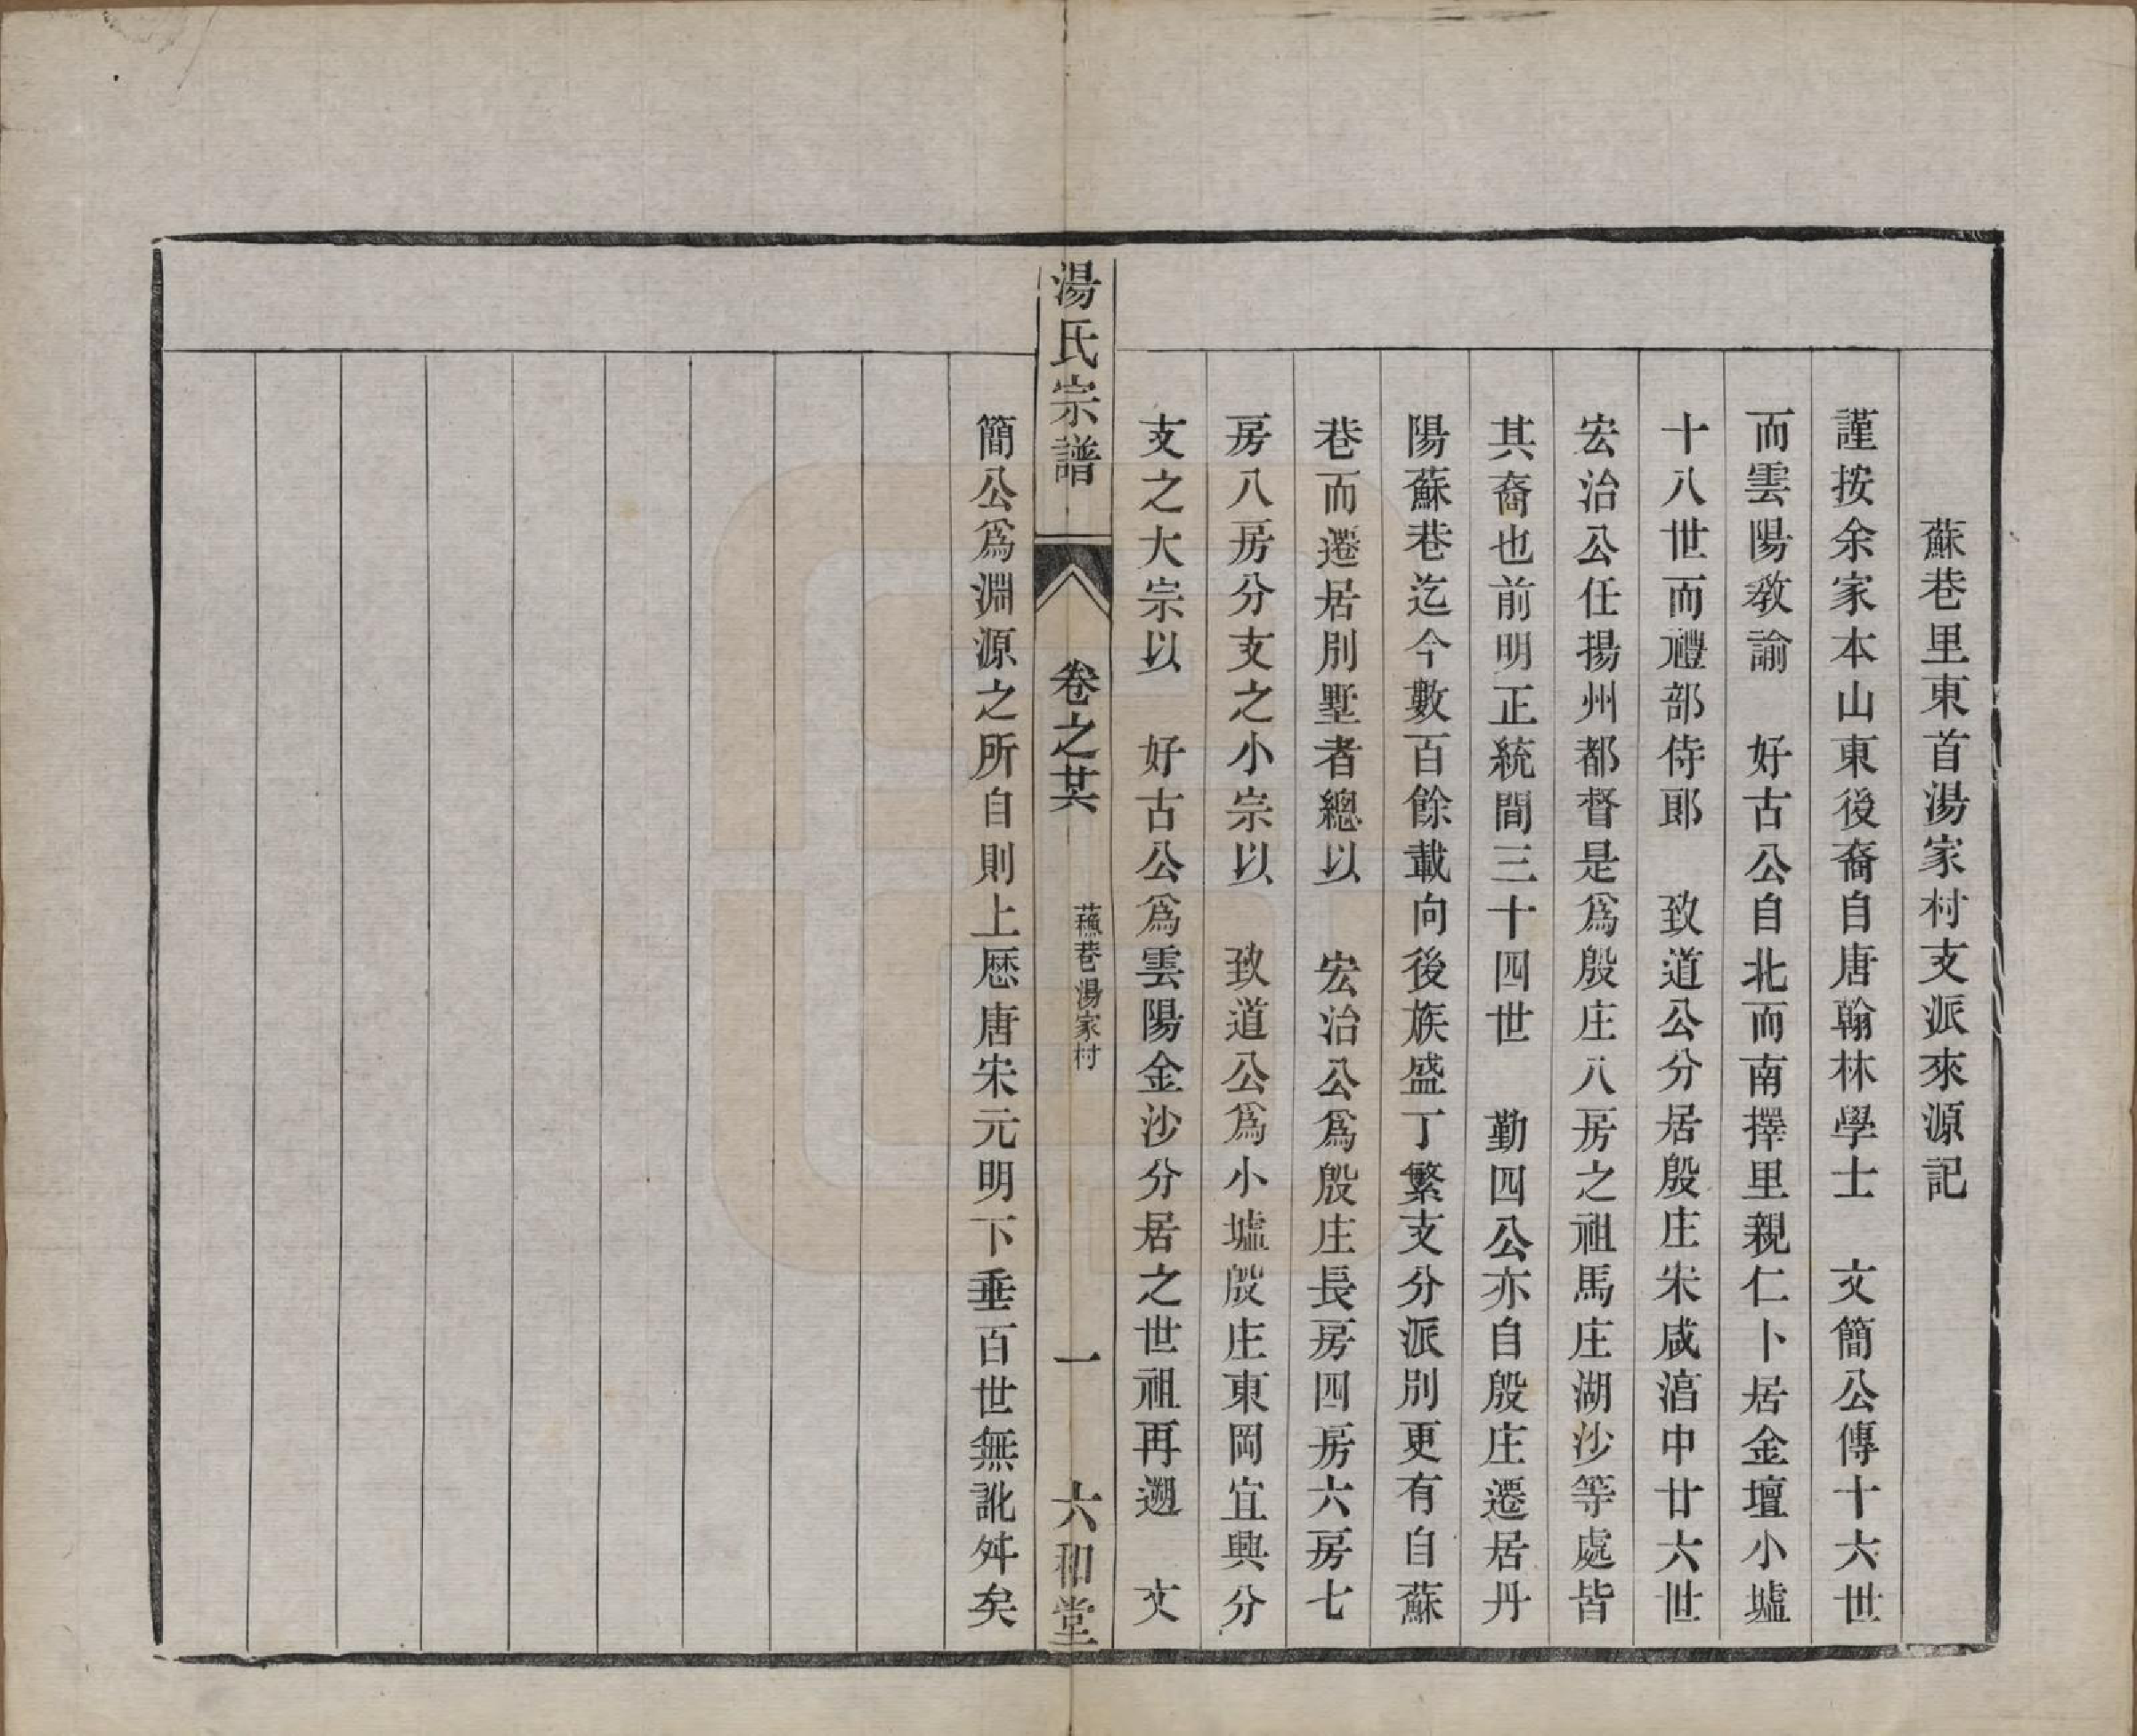 蘇巷里東首湯家村支派來源記
謹按余家本山東後裔自唐翰林學士　文簡公傳十六世
而雲陽教諭　好古公自北而南擇里親仁卜居金壇小墟
十八世而禮部侍郎　致道公分居殷庄宋咸淳中廿六世
宏治公任揚州都督是爲殷庄八房之祖馬庄湖沙等處皆
其裔也前明正統間三十四世　勤四公亦自殷庄遷居丹
陽蘇巷迄今數百餘載向後族盛丁繁支分派別更有自蘇
巷而遷居別墅者總以　宏治公爲殷庄長房四房六房七
房八房分支之小宗以　致道公爲小墟殷庄東岡宜興分
支之大宗以　好古公爲雲陽金沙分居之世祖再遡　文
湯氏宗譜　卷之其　蘓巷湯家村　一　六和堂
簡公爲淵源之所自則上歷唐宋元明下垂百世無訛舛矣